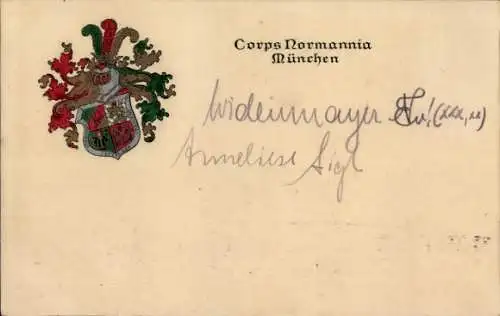 Corps Normannia
München
Widenmayer (xxx,xx)
Anneliese Sigl